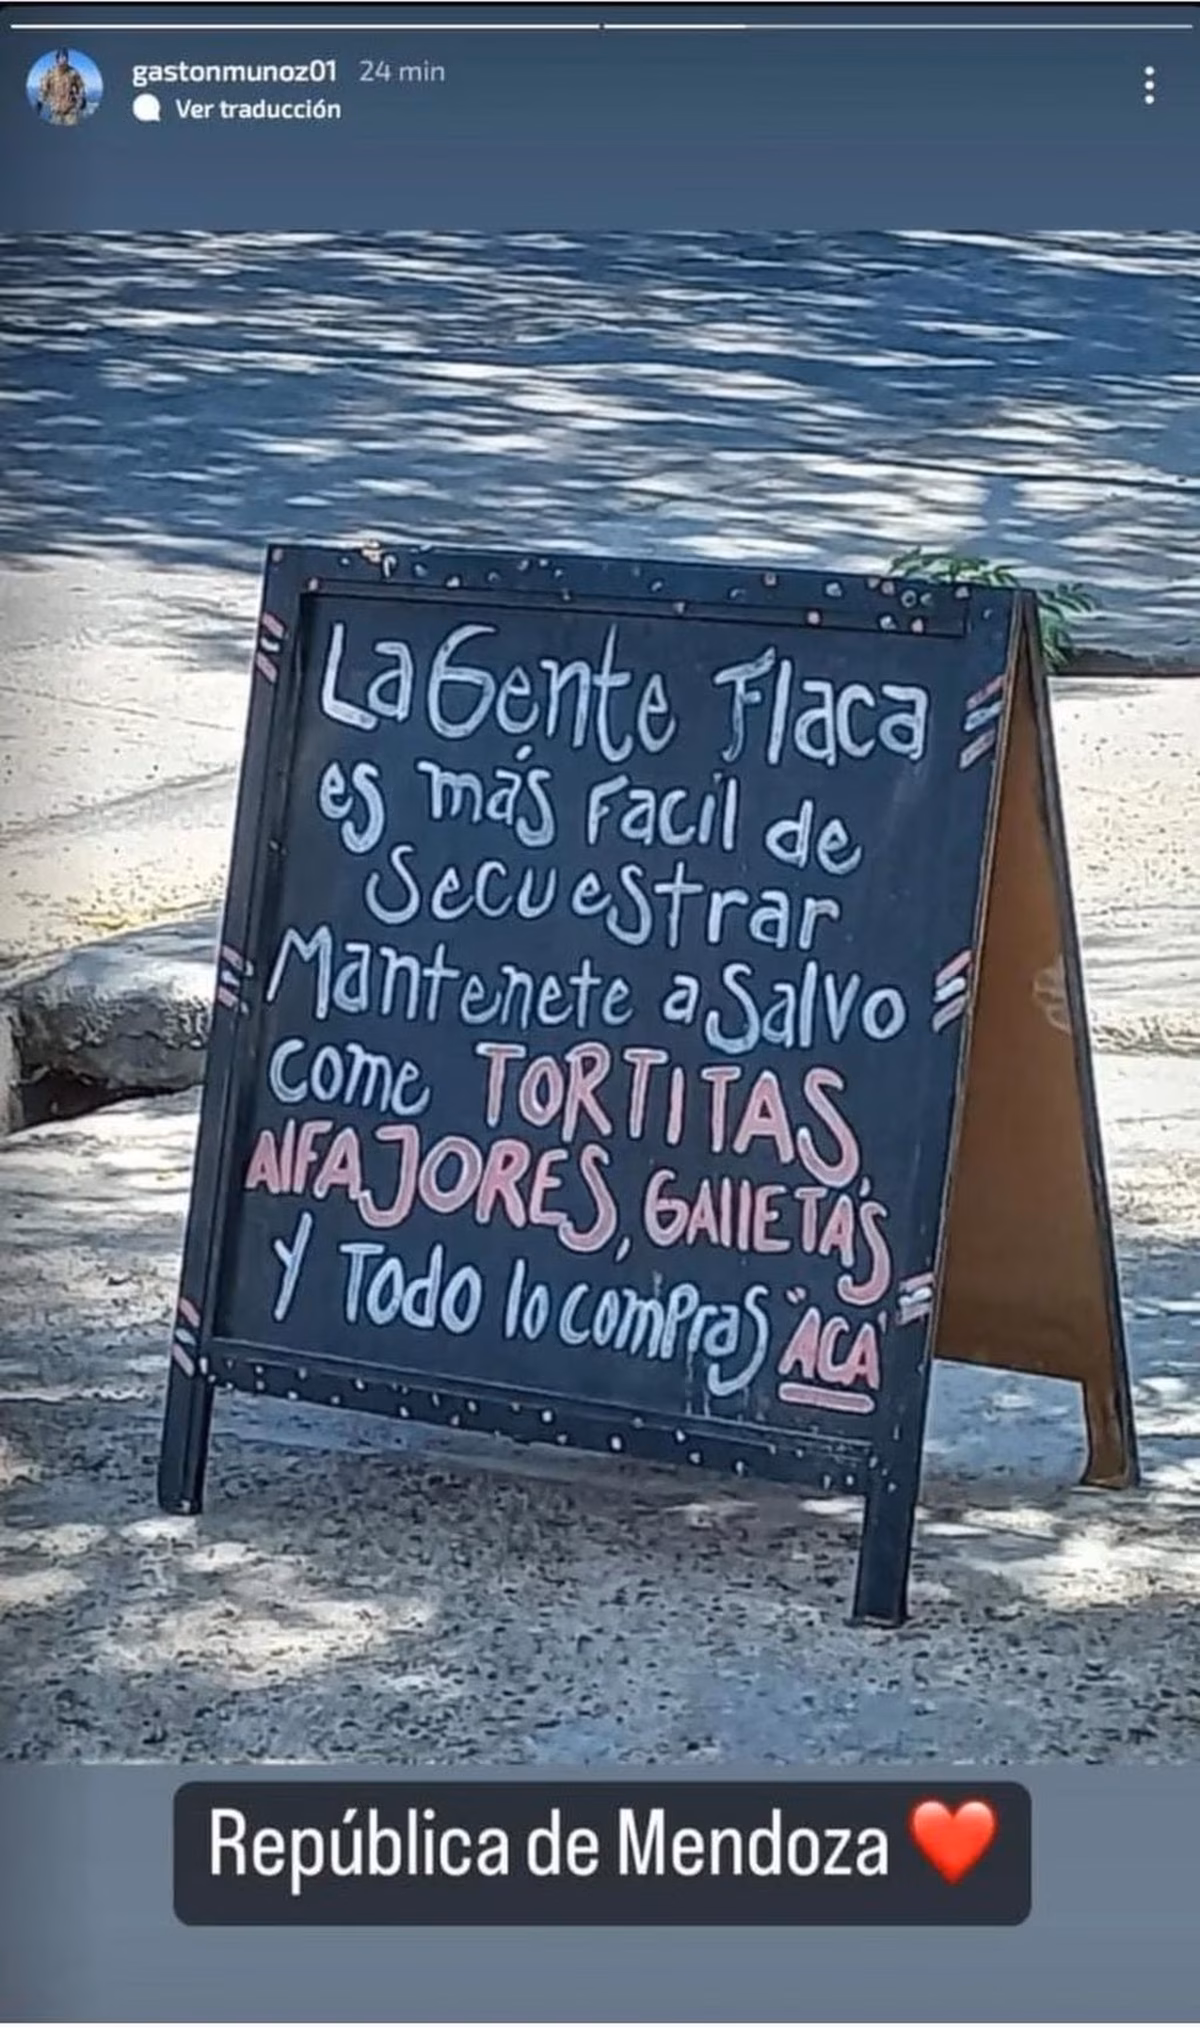 gastonmunoz01 24 min
Ver traducción
La Gente Flaca
es más Facil de
Secuestrar
Mantenete a Salvo
come TORTITAS,
AlFAJORES, GAllETAS
y Todo lo comPras "ACA"
República de Mendoza ❤️